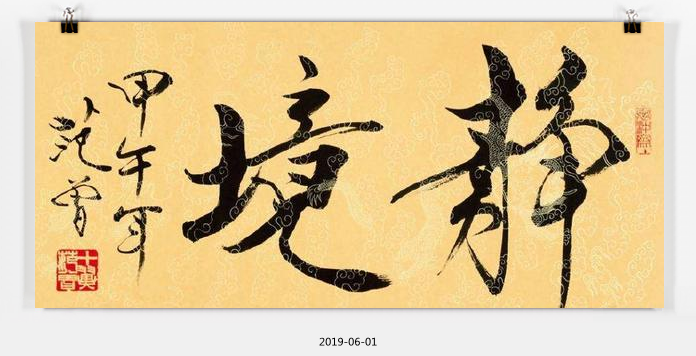 静境
甲午年
范曾
2019-06-01